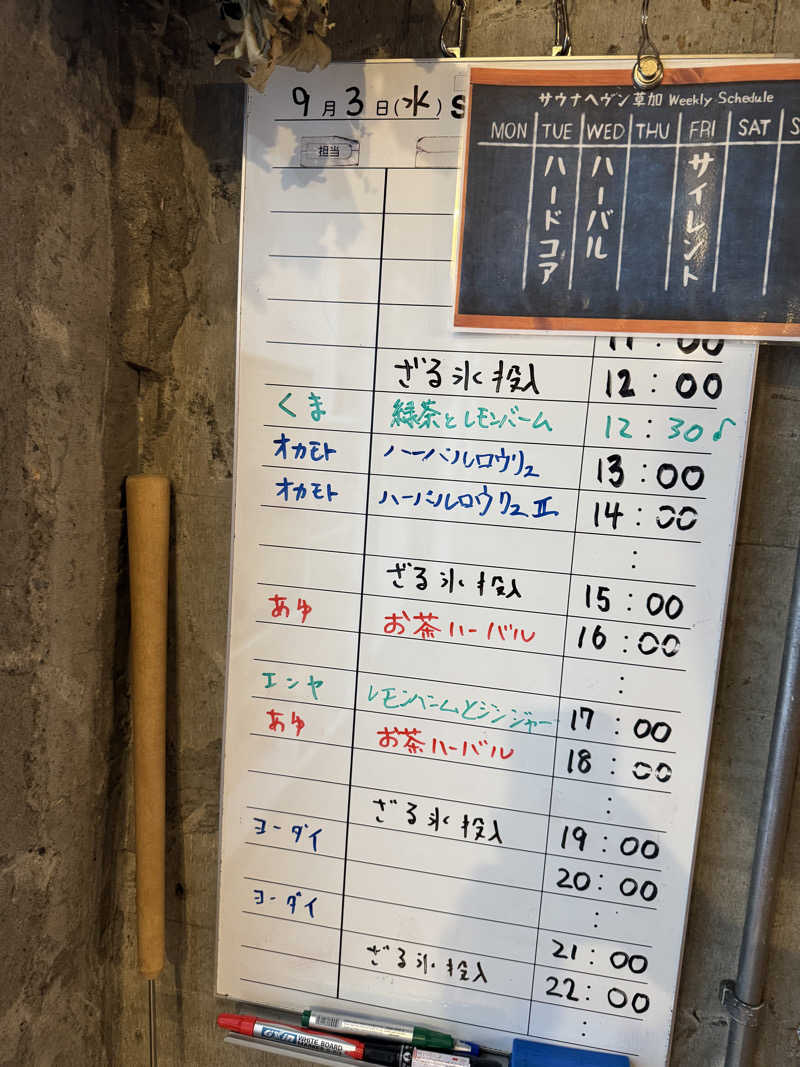 9月3日(水) S
担当
サウナヘヴン草加 Weekly Schedule
MON TUE WED THU FRI SAT S
ハードコア
ハーバル
サイレント
11:00
ざる氷投入 12:00
くま 緑茶とレモンバーム 12:30♪
オカモト ハーバルロウリュ 13:00
オカモト ハーバルロウリュⅡ 14:00
:
ざる氷投入 15:00
あゆ お茶ハーバル 16:00
:
エンヤ レモンバームとジンジャー 17:00
あゆ お茶ハーバル 18:00
:
ざる氷投入 19:00
ヨーダイ 20:00
:
ヨーダイ 21:00
ざる氷投入 22:00
:
WHITE BOARD